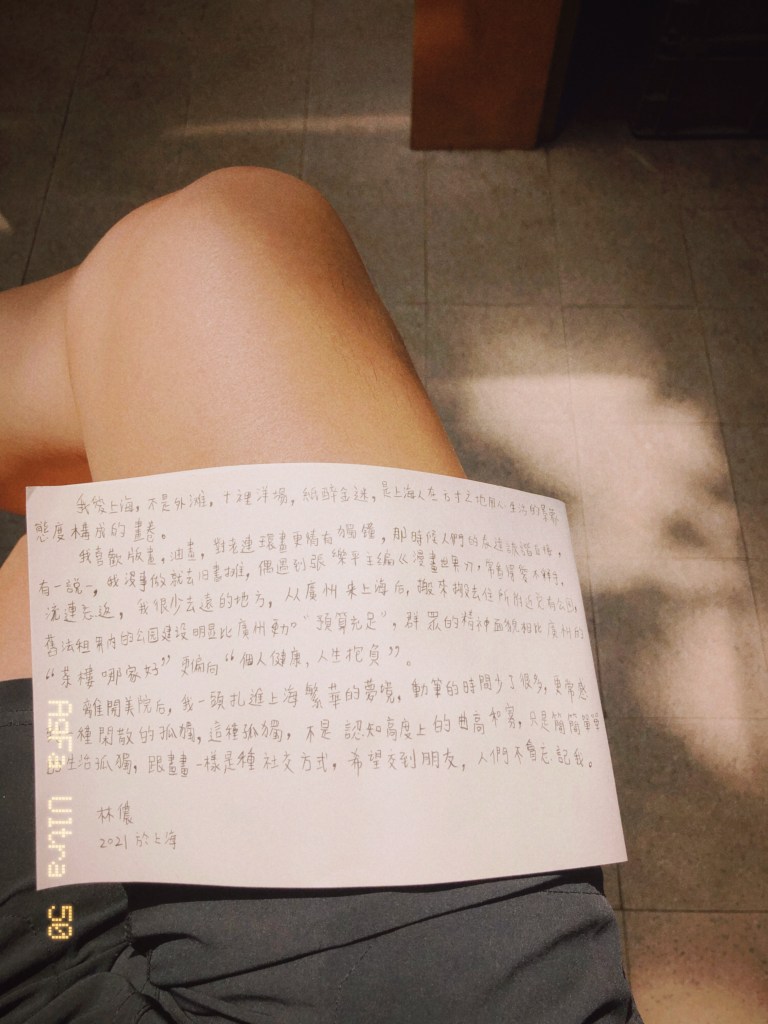 我愛上海，不是外灘，十裡洋場，紙醉金迷，是上海人在方寸之地用心生活的
態度構成的畫卷。
我喜歡版畫，油畫，對老連環畫更情有獨鍾，那時候人們的表達詼諧自嘲，
有一說一，我沒事做就去旧書攤，偶遇到張樂平主編《漫畫世界》，
流連忘返，我很少去遠的地方，从廣州來上海后，搬來搬去住所附近完有公园，
舊法租界內的公园建設明显比廣州更加“預算充足”，群眾的精神面貌相比廣州的
“茶樓哪家好”更偏向“個人健康，人生抱負”。
離開美院后，我一頭扎進上海繁華的夢境，動筆的時間少了很多，更常感
種閑散的孤獨，這種孤獨，不是認知高度上的曲高和寡，只是簡簡單單
生活孤獨，跟畫畫一樣是種社交方式，希望交到朋友，人們不會忘記我。
林儂
2021 於上海
Agfa Ultra 50